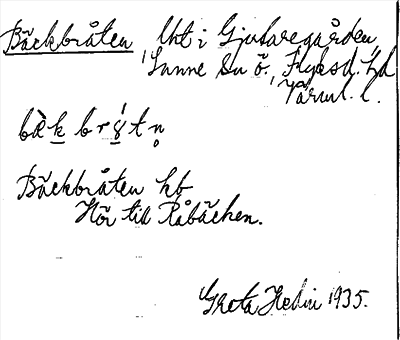 Bäckbråten lht i Gjutaregården
Sunne Su ö., Fryksd. hd
Värml. l.
bäk brötn
Bäckbråten hb
Hör till Råbäcken.
Greta Hedin 1935.